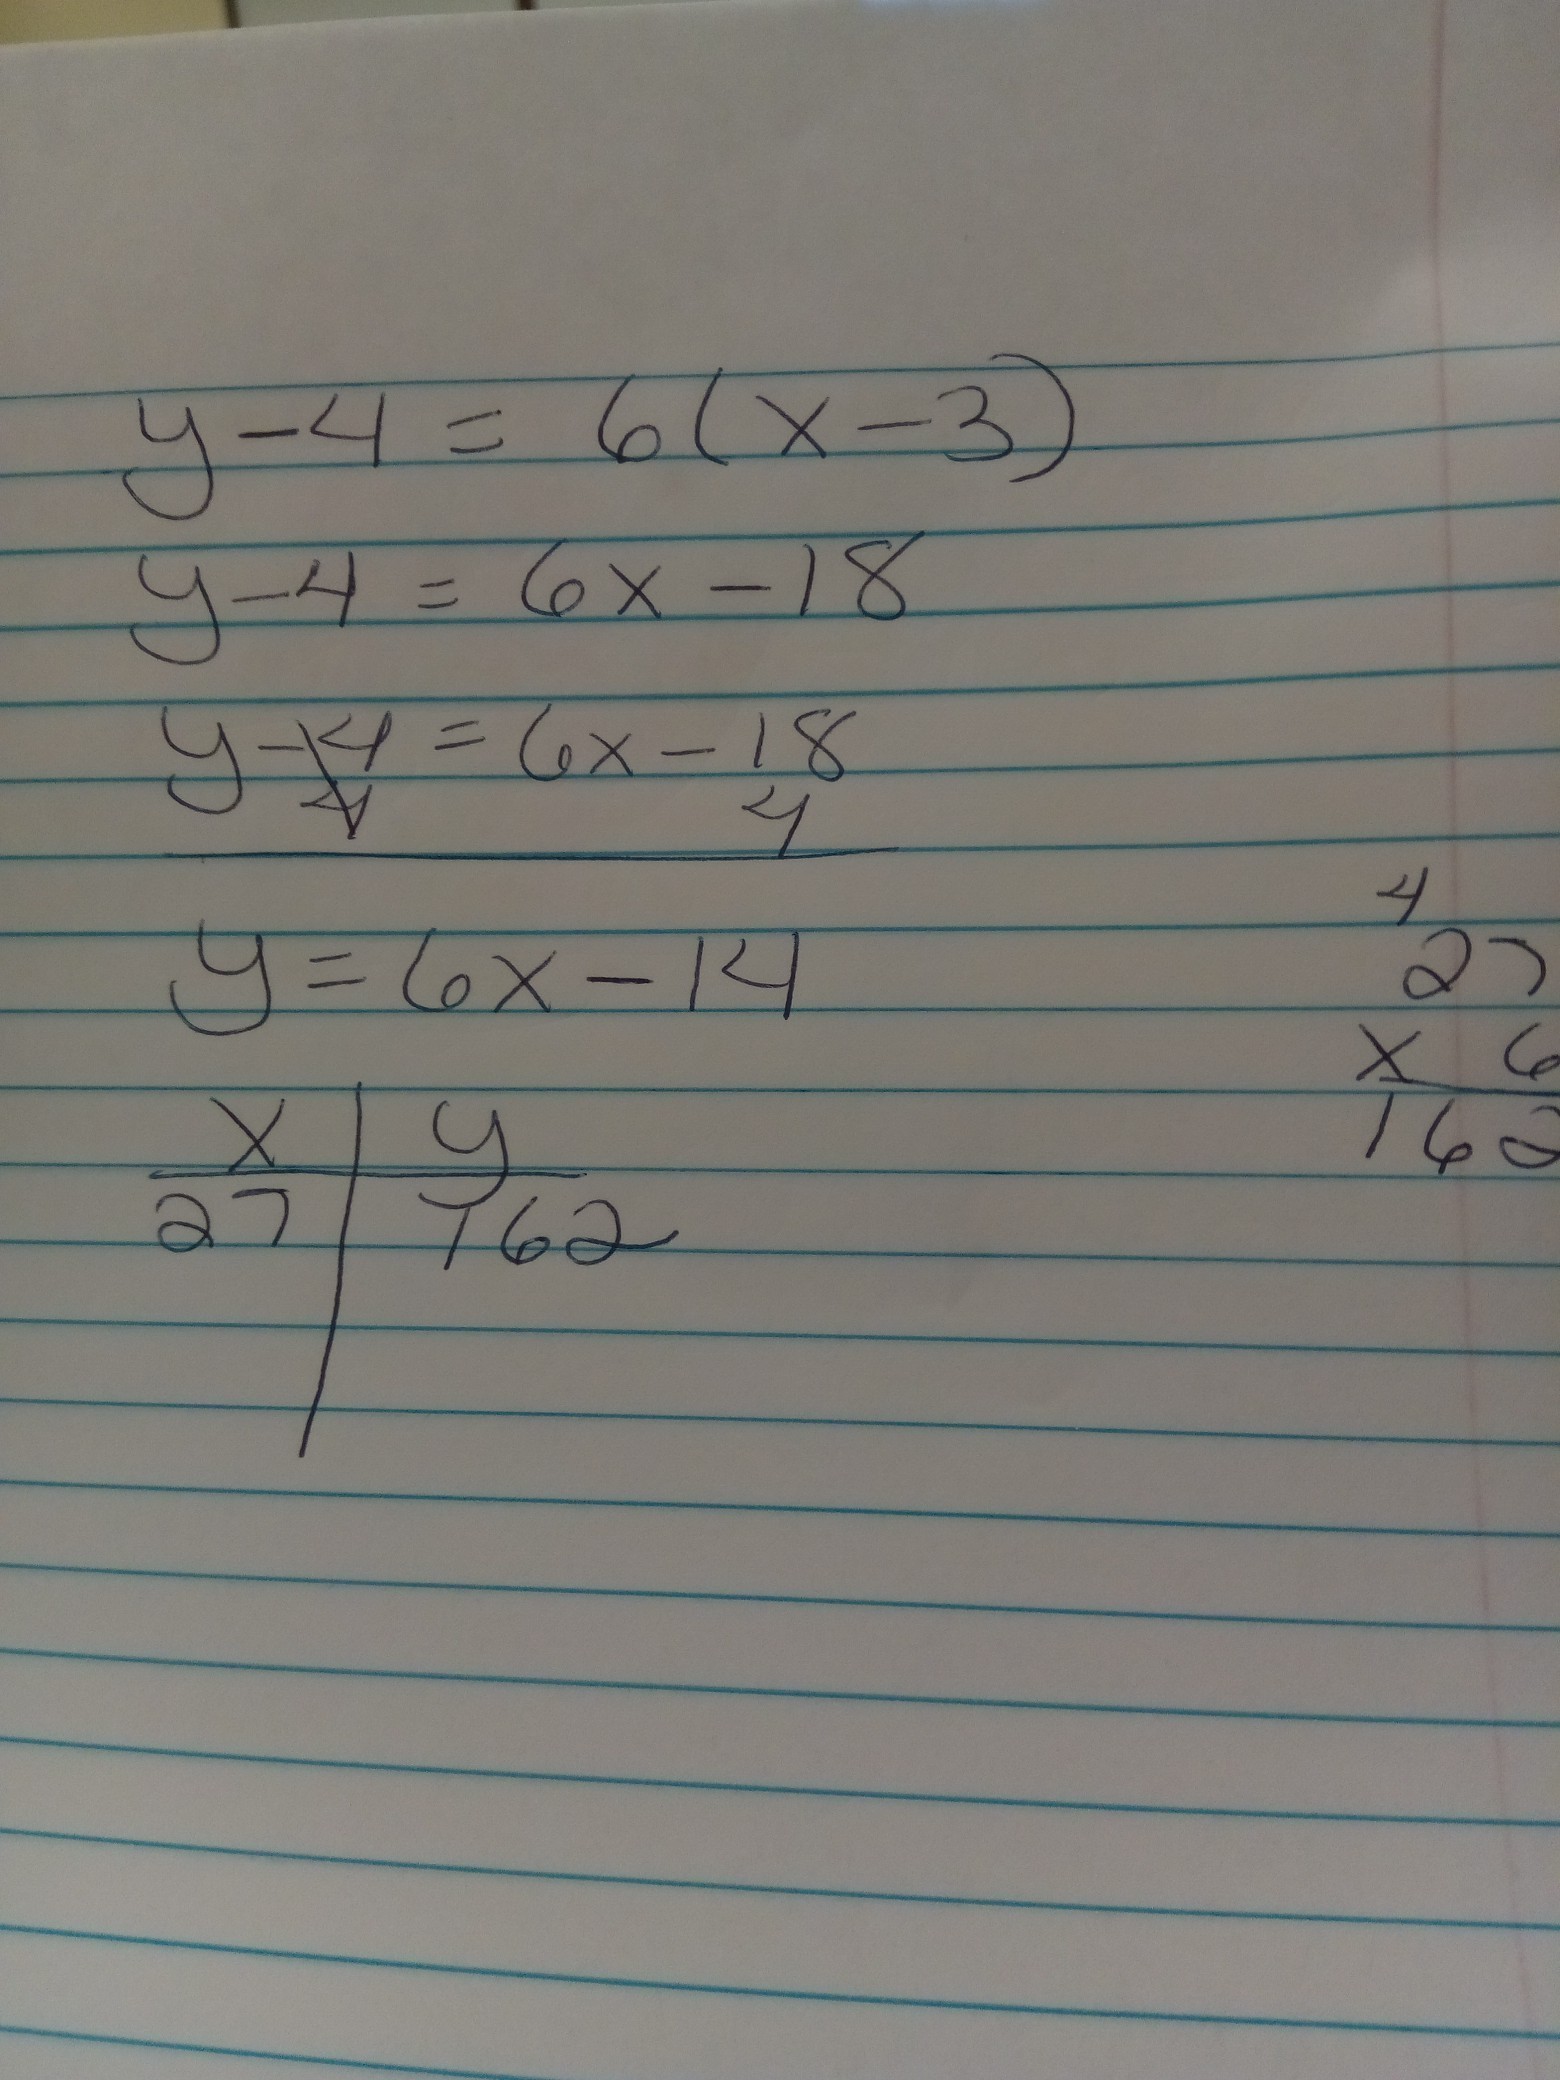 y - 4 = 6(x - 3)
y - 4 = 6x - 18
y - 4 = 6x - 18
4 4
y = 6x - 14
x y
27 162
4
27
x 6
162